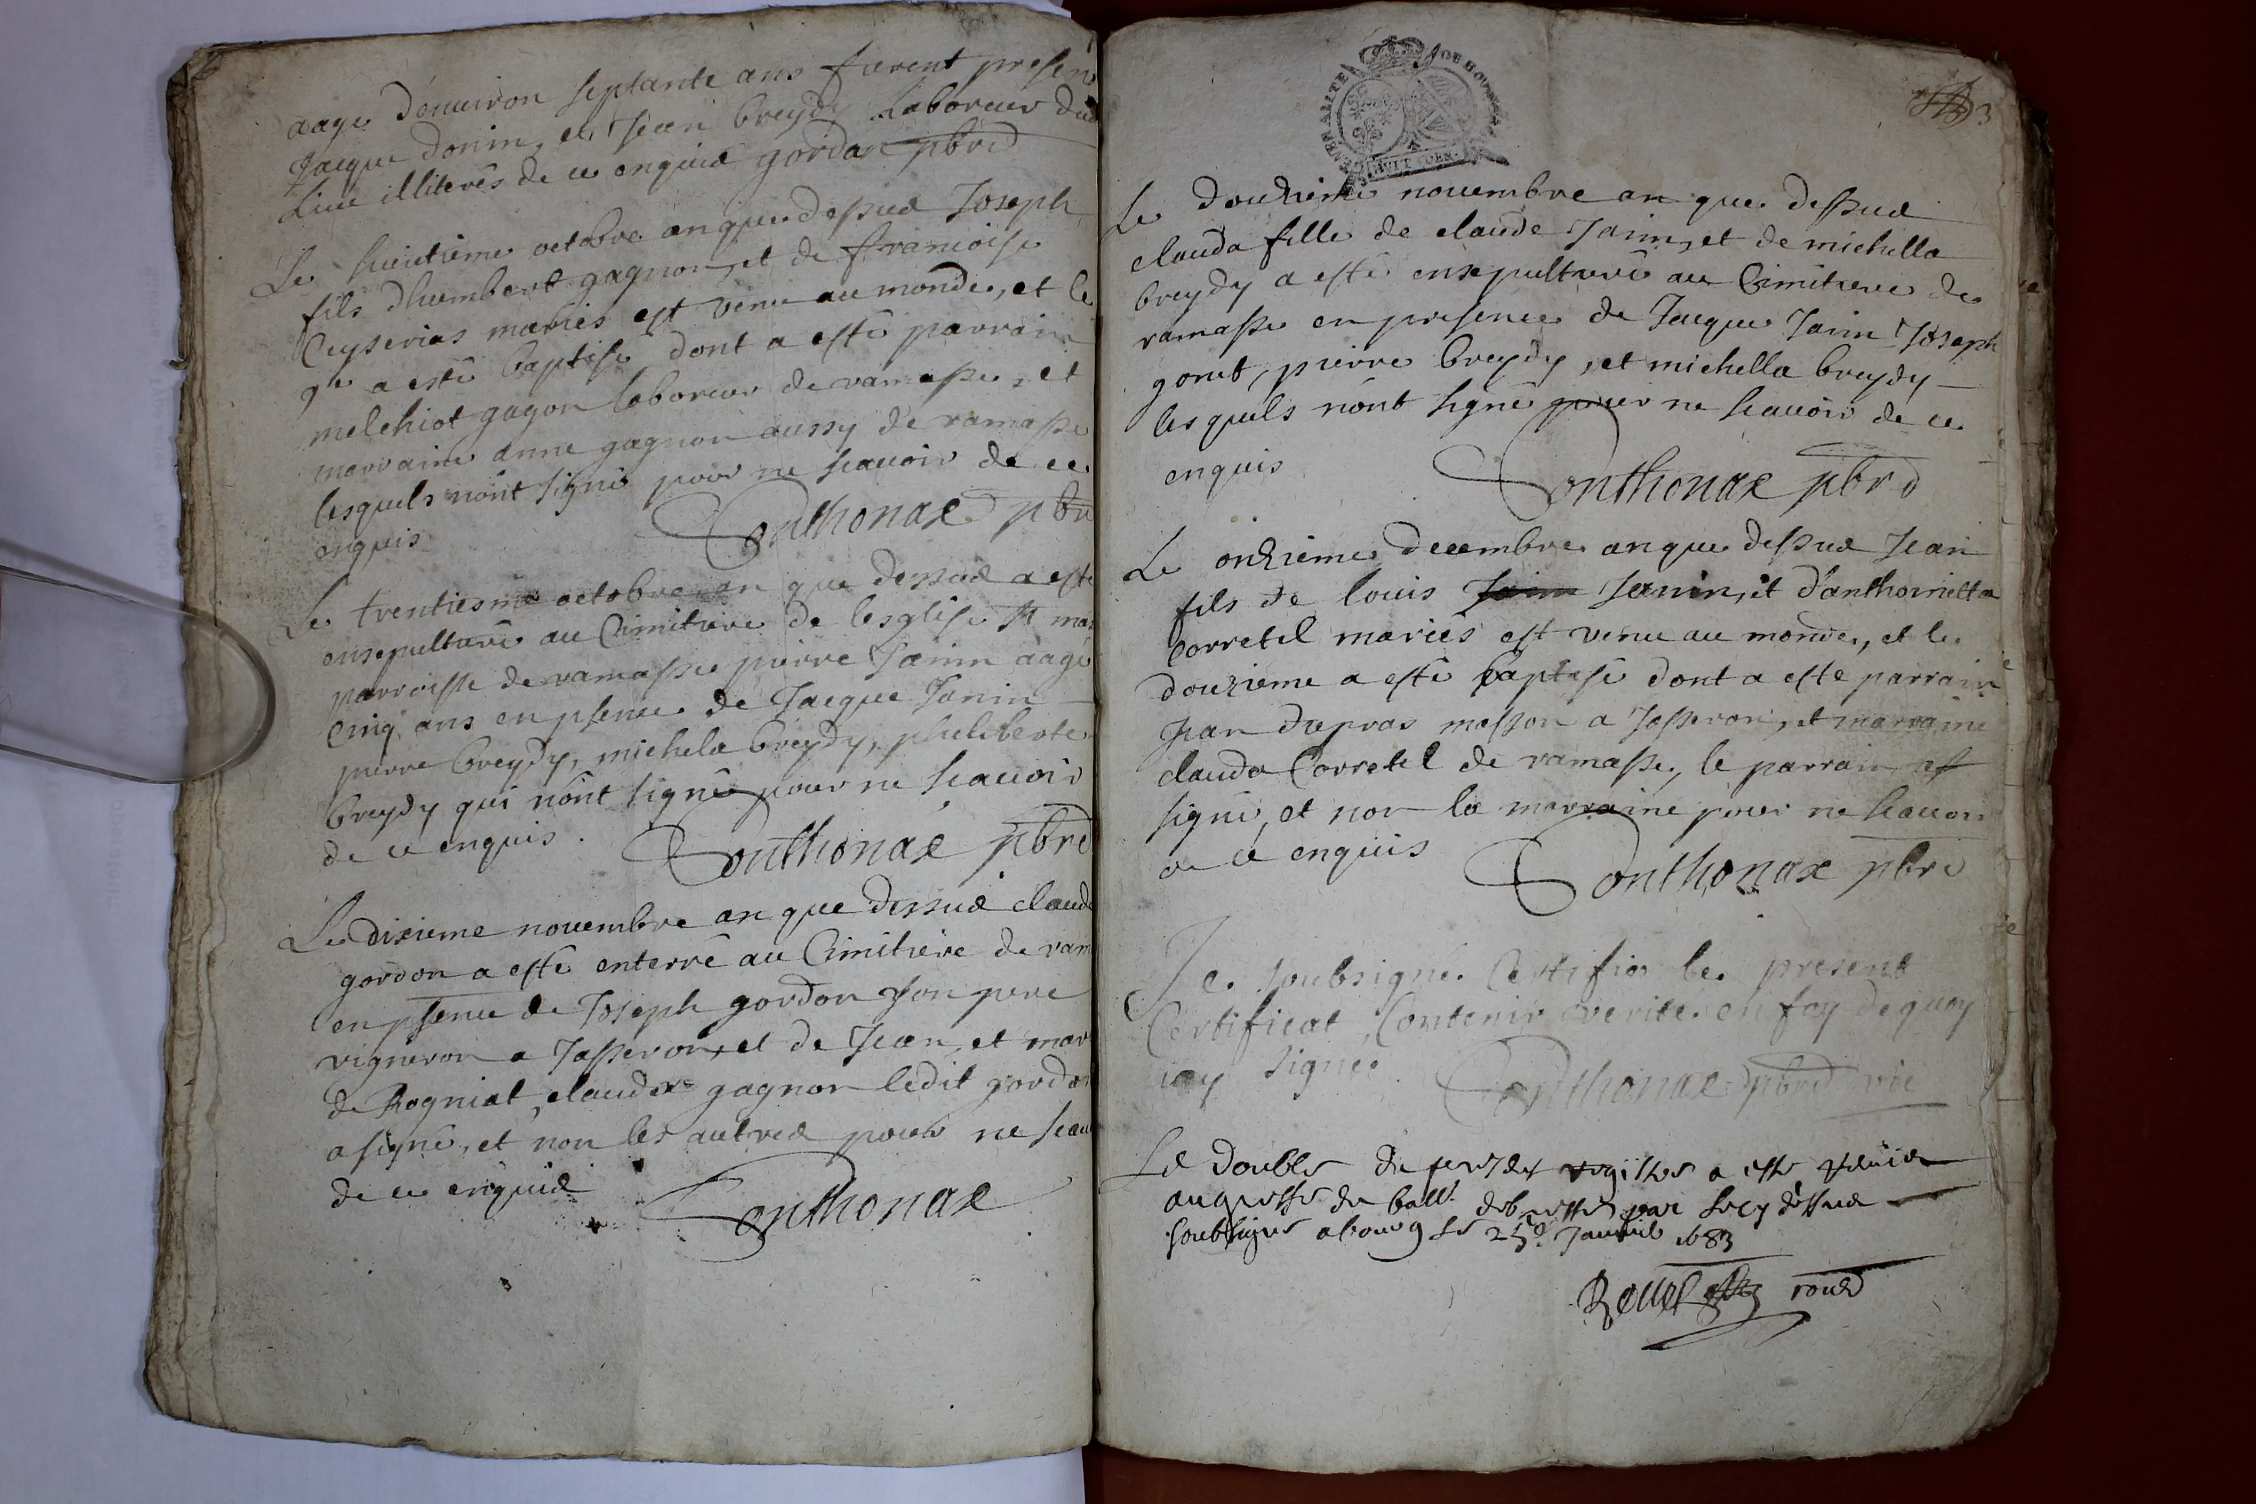 aagé d'enuiron septante ans furent presen
Jacque donin, et Jean breydy laboreur dud
Lieu illiterés de ce enquis gordon pbre
Le huictieme octobre an que dessus Joseph
fils d'humbert gagnon, et de francoise
Ceyserias mariés est venu au monde, et le
9e a esté baptisé dont a esté parrain
melchiot gagon laboreur de ramasse, et
marraine anne gagnon aussy de ramasse
lesquels n'ont signé pour ne scauoir de ce
enquis Gonthonax pbre
Le trentiesme octobre an que dessus a esté
ensepulturé au Cimitiere de lesglise
parroisse de ramasse pierre Janin aagé
cinq ans en psence de Jacque Janin
pierre breydy, michela breydy, philiberte
breydy qui n'ont signé pour ne scauoir
de ce enquis. Gonthonax pbre
Le dixieme nouembre an que dessus claude
gordon a esté enterré au Cimitiere de ram
en psence de Joseph gordon son pere
vigneron a Jasseron, et de Jean, et mar
de Rogniat, claude gagnon ledit gordon
a signé, et non les autres pour ne scau
de ce enquis Gonthonax
GENERALITE DE BOURG
3
Le douzieme nouembre an que dessus
clauda fille de claude Janin, et de michella
breydy a esté ensepulturé au Cimitiere de
ramasse en presence de Jacque Janin Joseph
goret, pierre breydy, et michella breydy
lesquels n'ont signé pour ne scauoir de ce
enquis Gonthonax pbre
Le onzieme decembre an que dessus Jean
fils de louis Janin Janin, et d'anthoinetta
Corretel mariés est venu au monde, et le
douzieme a esté baptisé dont a esté parrain
Jean dupras masson a Jasseron, et marraine
clauda Corretel de ramasse, le parrain
signé, et non la marraine pour ne scauoir
de ce enquis Gonthonax pbre
Je soubsigné Certifie le present
Certificat Contenir verité en foy de quoy
iay signé Gonthonax pbre vic
Le double du registre a esté
au greffe du ball. de bresse par
soubsigné a bourg le 25e Januier 1683